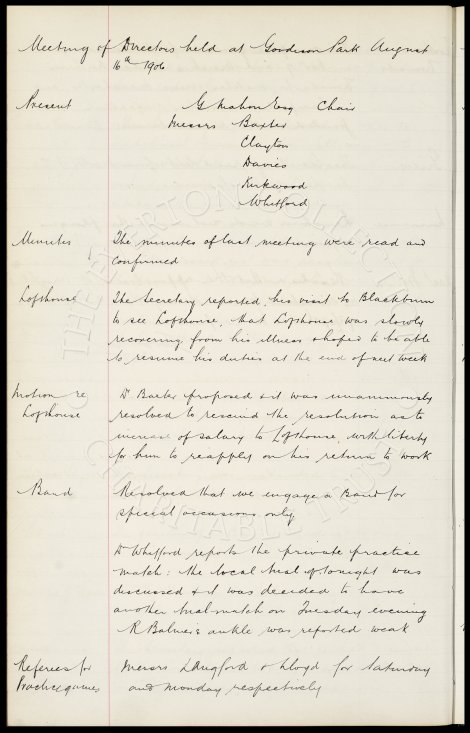 Meeting of Directors held at Goodison Park August
16th 1906
Present
G Mahon Esq Chair
Messrs Baxter
Clayton
Davies
Kirkwood
Whitford
Minutes
The minutes of last meeting were read and
confirmed
Lofthouse
The Secretary reported, his visit to Blackburn
to see Lofthouse, that Lofthouse was slowly
recovering from his illness & hoped to be able
to resume his duties at the end of next week
Motion re
Lofthouse
Dr Baxter proposed & it was unanimously
resolved to rescind the resolution as to
increase of salary to Lofthouse, with liberty
for him to reapply on his return to work
Band
Resolved that we engage a Band for
special occasions only
Dr Whitford reports the private practise
match: the local trial of tonight was
discussed & it was decided to have
another trial match on Tuesday evening
R Balmer's ankle was reported weak
Referees for
Practice games
Messrs Langford & Lloyd for Saturday
and Monday respectively
THE EVERTON COLLECTION
CHARITABLE TRUST